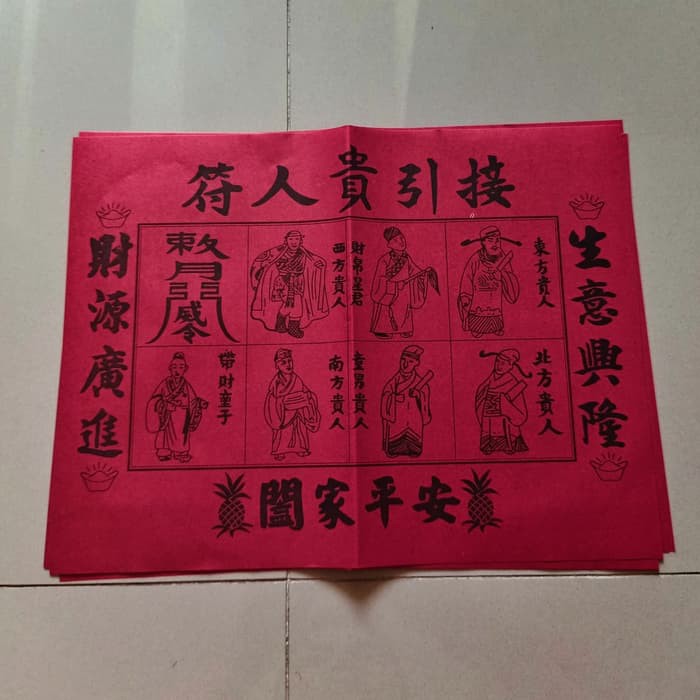 接引貴人符
生意興隆
東方貴人
財帛星君
西方貴人
北方貴人
童男貴人
南方貴人
帶財童子
財源廣進
闔家平安